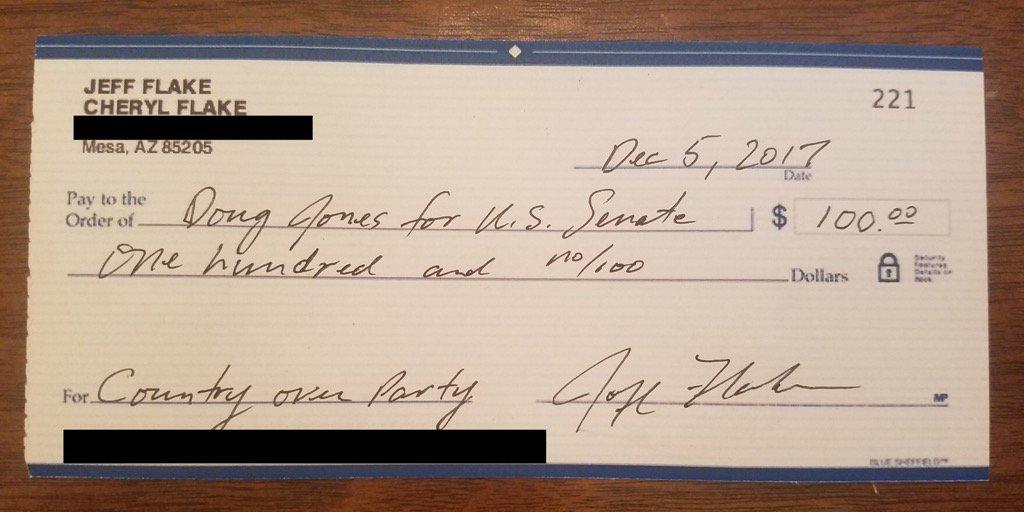 JEFF FLAKE
CHERYL FLAKE
Mesa, AZ 85205
221
Dec 5, 2017
Date
Pay to the
Order of Doug Jones for U.S. Senate $ 100.00
One hundred and no/100 Dollars
Security
Features
Details on
Back
For Country over Party Jeff Flake
MP
BLUE SHEFFIELD™